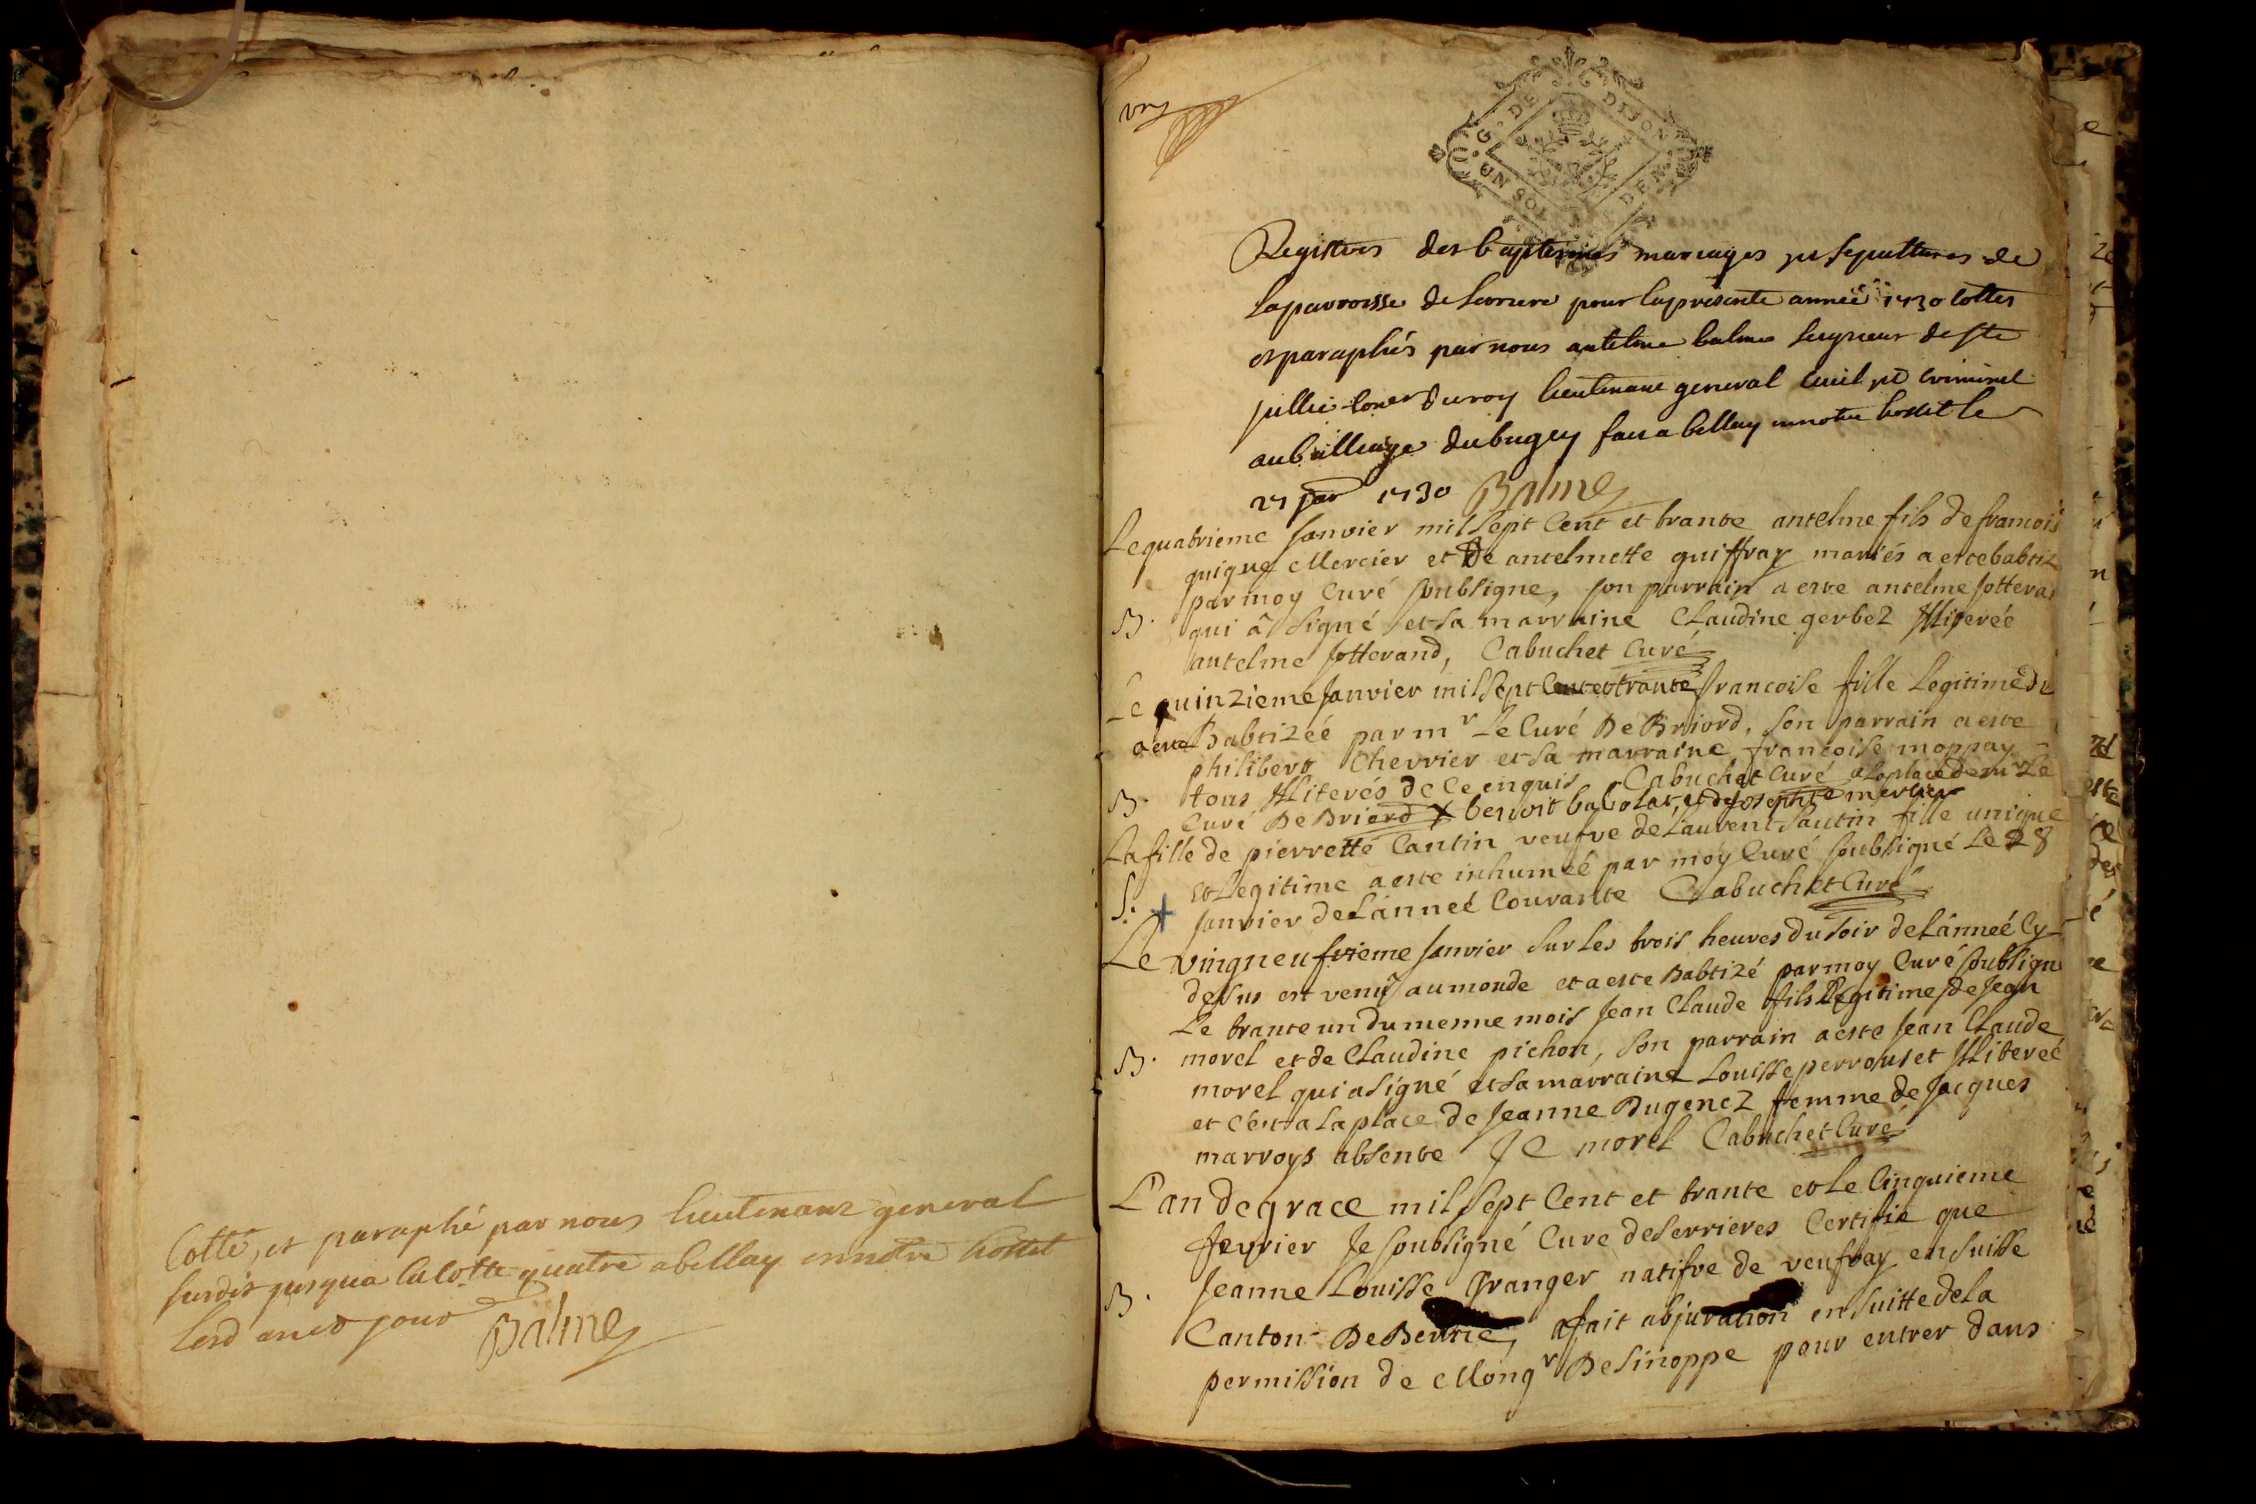 Cotté, et paraphé par nous lieutenant general
susdit jusqua la cotte quatre a bellay en notre hostel
lesd an et jour
Balme
G. DE DIJON
UN SOL DEN
Registres des baptesmes mariages et sepultures de
la parroisse de serriere pour la presente année 1730 cottes
et paraphés par nous antelme balme seigneur de ste
jullie coner du roy lieutenant general civil et criminel
au bailliage du bugey fait a bellay en notre hostel le
27 jar 1730 Balme
Le quatrieme Janvier mil sept Cent et trante antelme fils de francois
guigue Mercier et De antelmette guiffray mariés a este babtiz
par moy Curé soubsigne, son parrain a este antelme Jotteran
B. qui â signé et sa marraine Claudine gerbez Illiterée
antelme Jotterand, Cabuchet Curé
Le quinzieme Janvier mil sept Cent et trante francoise fille Legitime de
a este Babtizéé par mr Le Curé De Briord, son parrain a este
philibert Chervier et sa marraine francoise moppay
B. tous Illiterés de ce enquis Cabuchet Curé a la place de mr Le
Curé De Briord X benoit babolat, et de josephte mercier
La fille de pierrette Cantin veufve de Laurent Sautin fille unique
et Legitime a este inhuméé par moy Curé soubsigné Le 28
S. + Janvier de L'anneé Courante Cabuchet Curé
Le vingneufvieme Janvier sur les trois heures du soir de L'anneé Cy-
desus est venu au monde et a este Babtizé par moy Curé soubsigne
Le trante un du mesme mois Jean Claude fils Legitime de Jean
B. morel et de Claudine pichon, son parrain a este Jean Claude
morel qui a signé et sa marraine Louisse perrouset Illitereé
et C'est a la place de Jeanne Dugenez femme de Jacques
marroys absente J C morel Cabuchet Curé
L'an de grace mil sept Cent et trante et Le Cinquieme
fevrier Je soubsigné Curé de Serrieres Certifie que
B. Jeanne Louisse Granger natifve de veufray en suisse
Canton De Berne, a fait abjuration en suitte de La
permission de Mongr De Sinoppe pour entrer dans